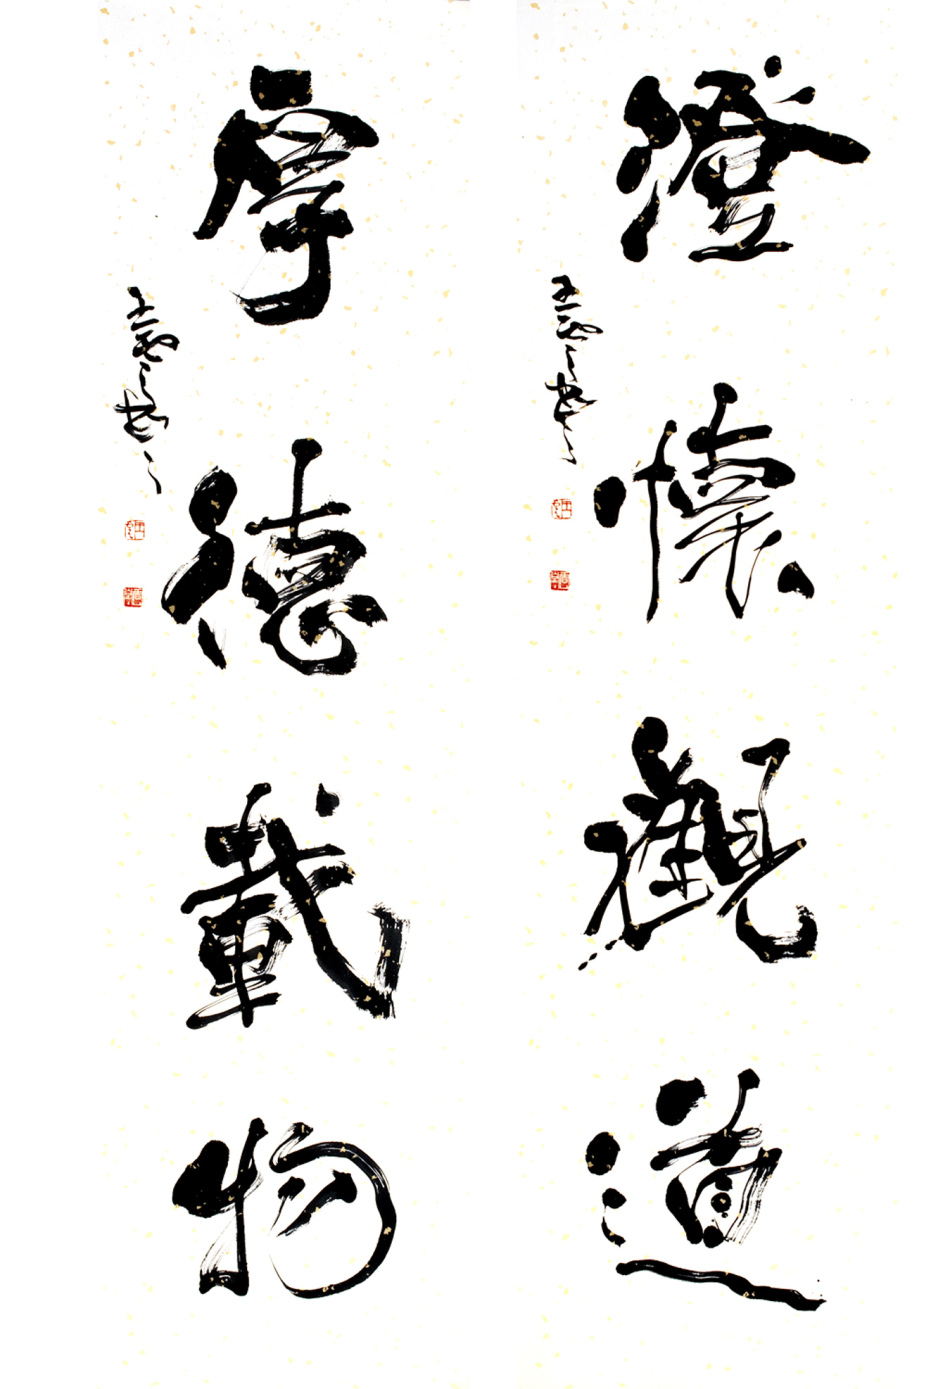 澄懷觀道
厚德載物